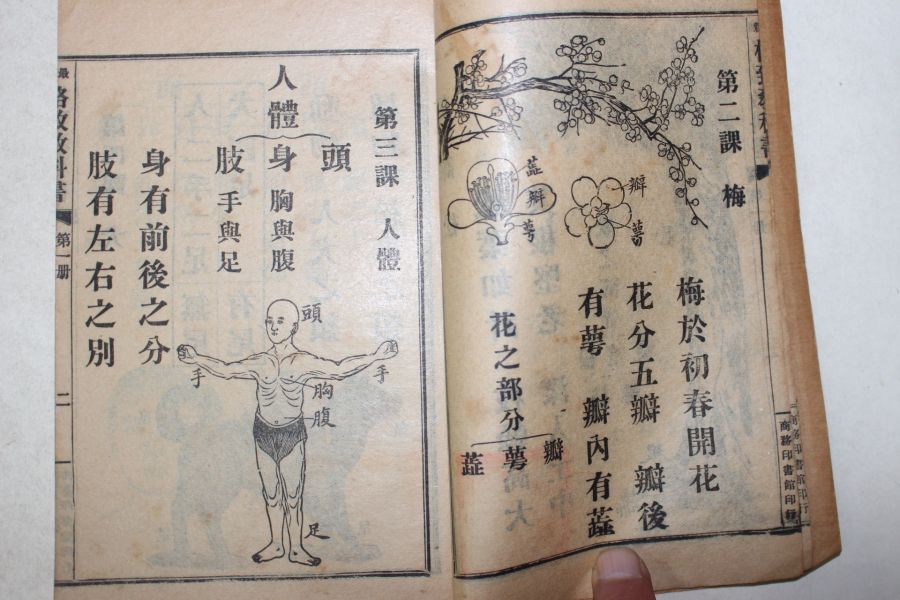 第二課 梅
瓣
萼
蕋
瓣
萼
梅於初春開花
花分五瓣 瓣後
有萼 瓣內有蕋
花之部分
瓣
萼
蕋
商務印書館印行
第三課 人體
人體
頭
身 胸與腹
肢 手與足
頭
手
手
胸
腹
足
身有前後之分
肢有左右之別
格致教科書
第一册
二